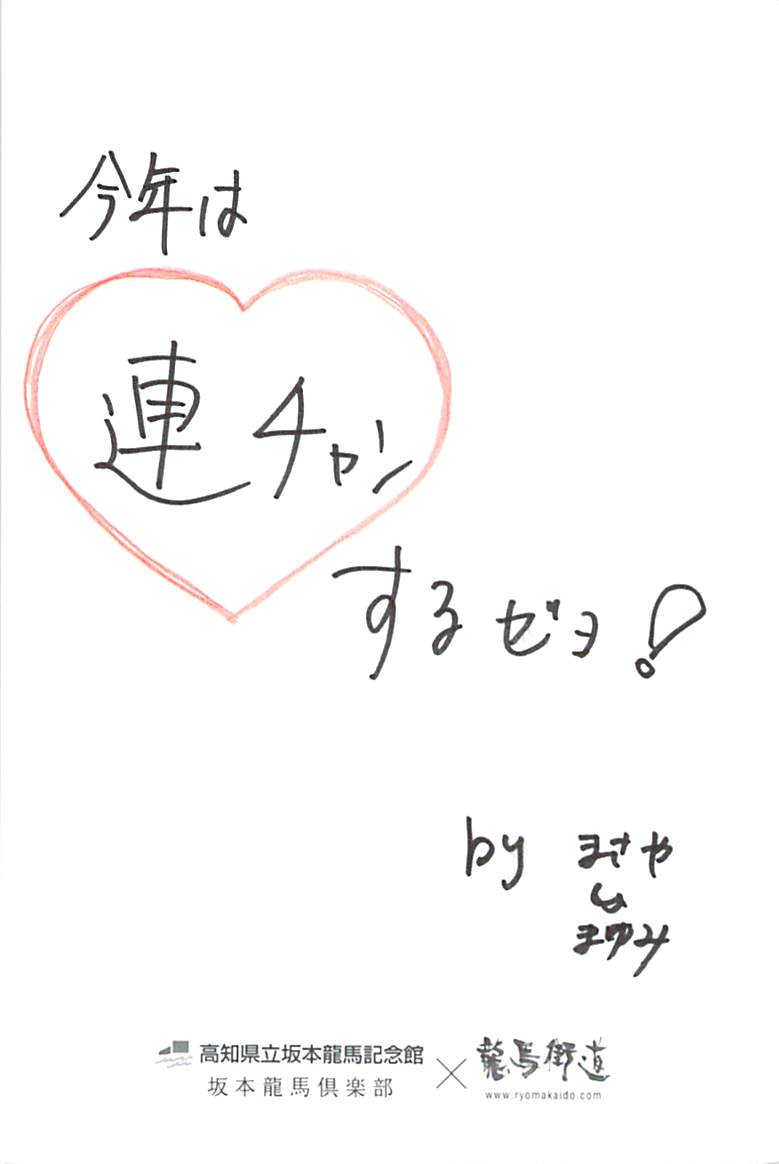 今年は
連チャン
するゼヨ!
by まさや
まゆみ
高知県立坂本龍馬記念館
坂本龍馬倶楽部
×
龍馬街道
www.ryomakaido.com